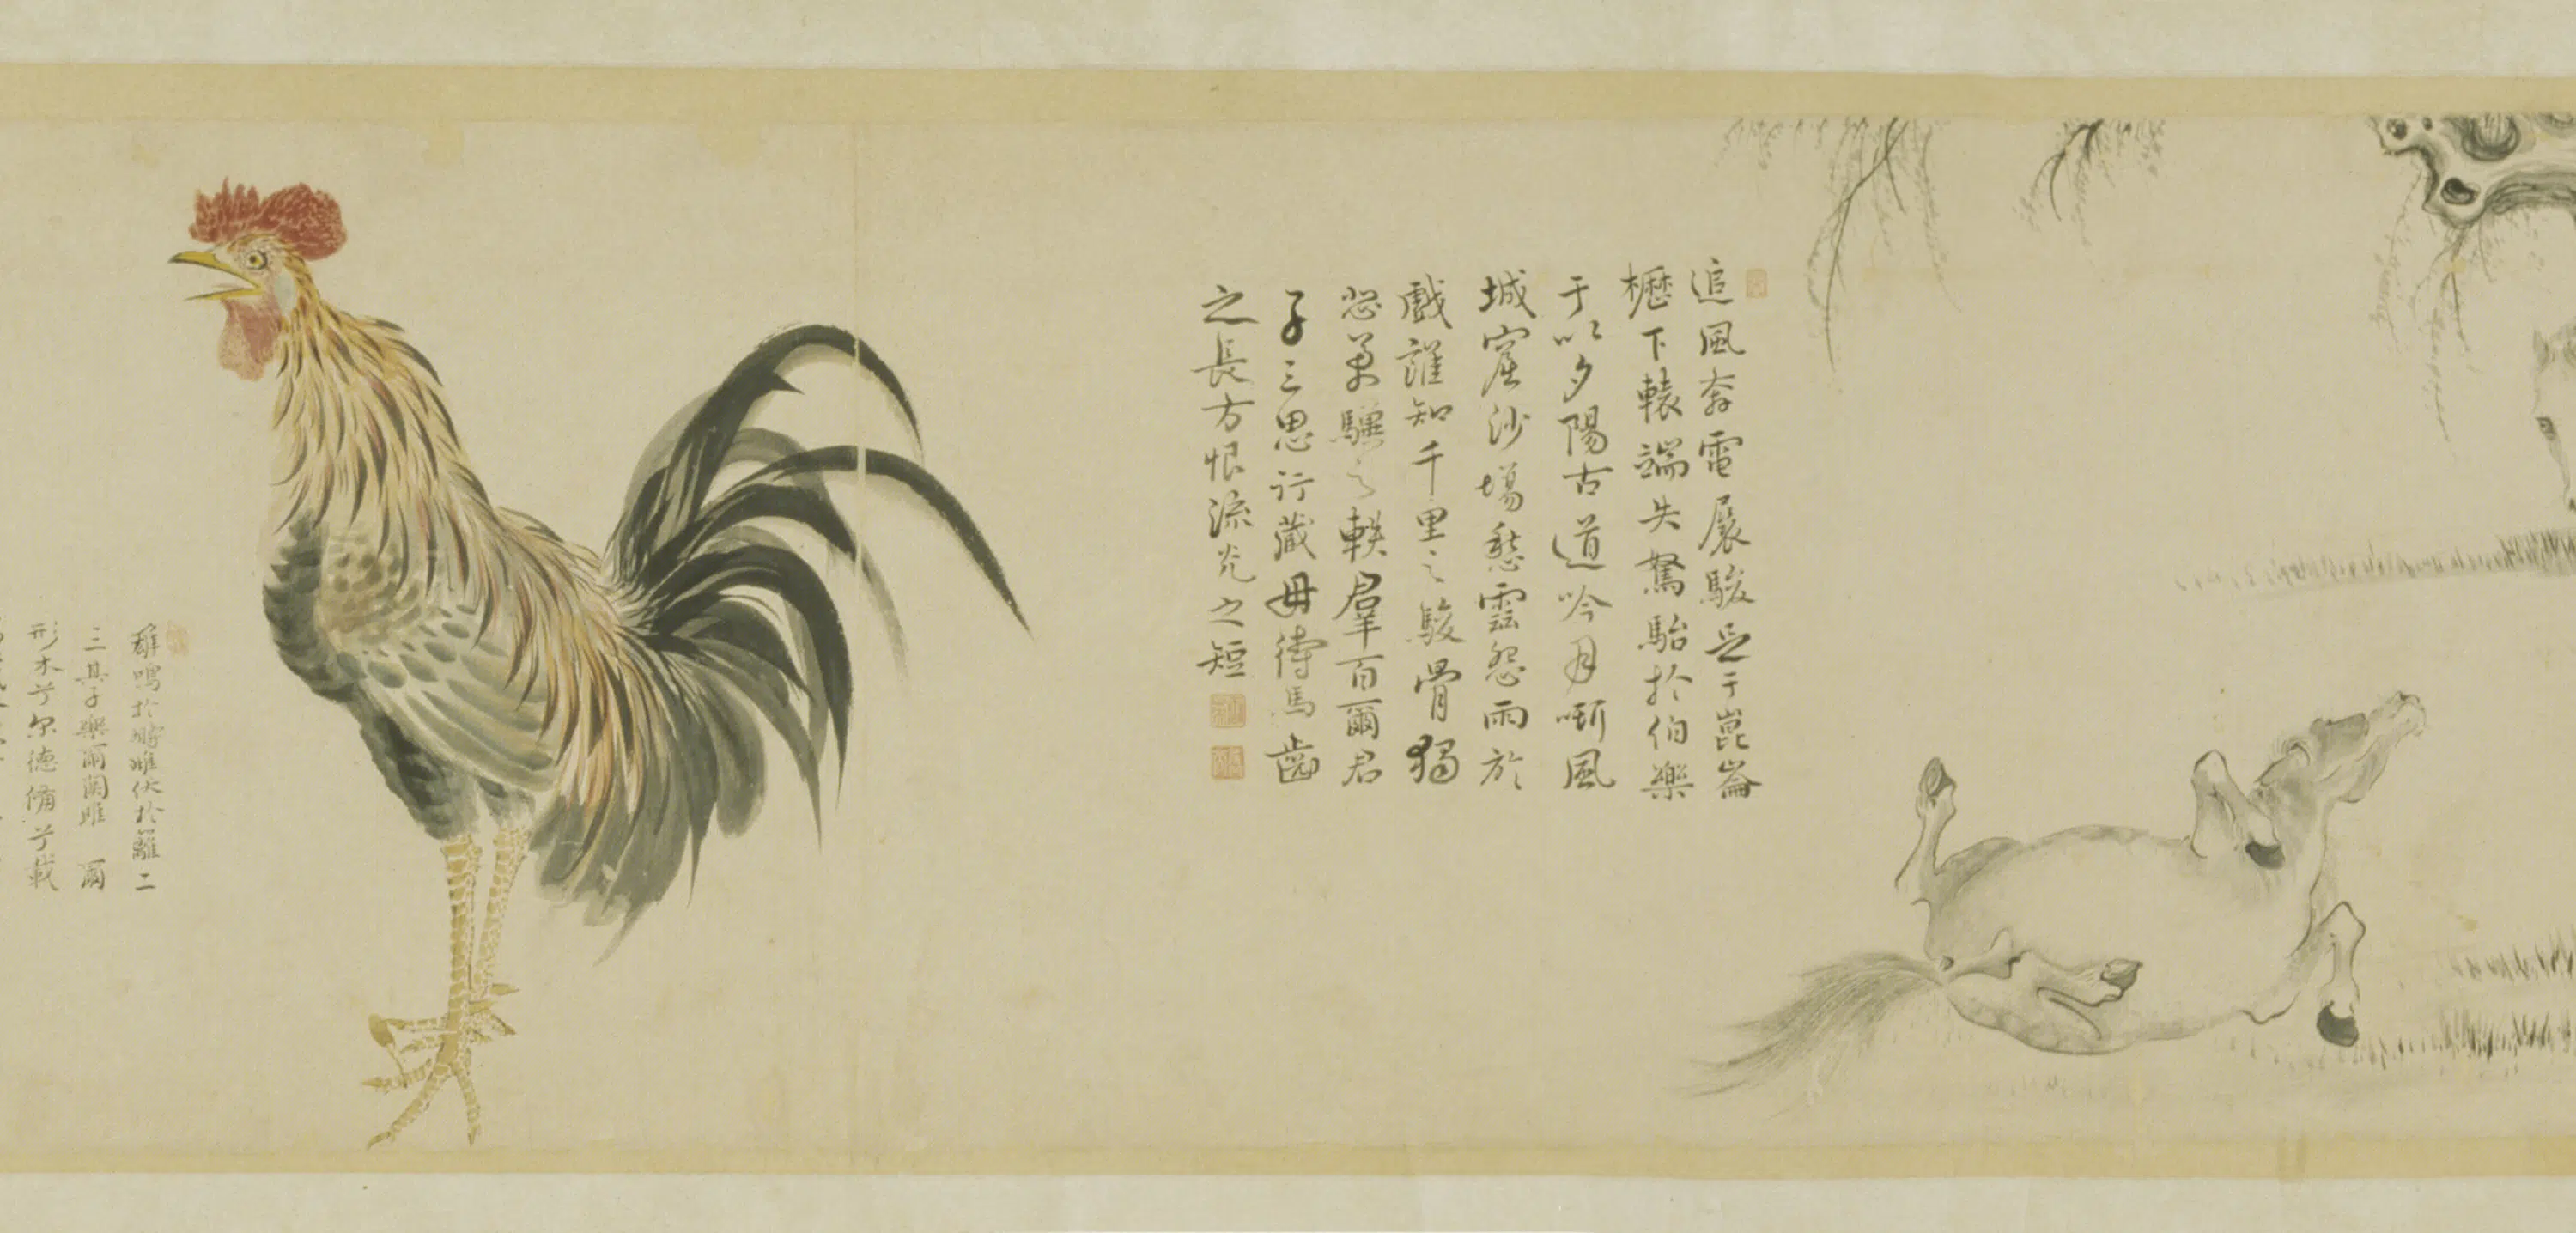 追風奔電展駿足于崑崙
櫪下轅端失駑駘於伯樂
于以夕陽古道吟月嘶風
城窟沙場愁雲怨雨於
戲誰知千里之駿骨獨
空萬驥之軼羣百爾君
子三思行藏毋待馬齒
之長方恨流光之短
雞鳴於塒雌伏於籬二
三其子樂爾關雎爾
形木兮尔德備兮載